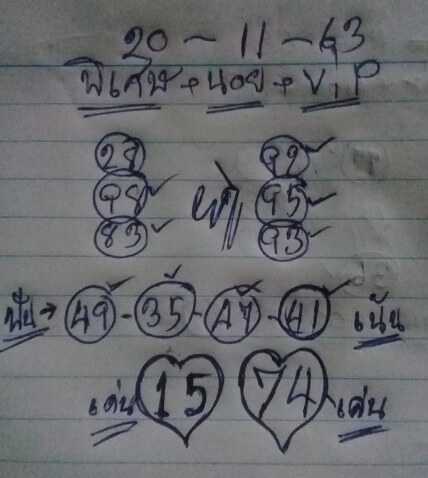 20 - 11 - 63
พิเศษ + นอย + V.I.P
92
98 95
83 93
49 - 35 - 47 - 41 เน้น
เด่น 15 74 เด่น